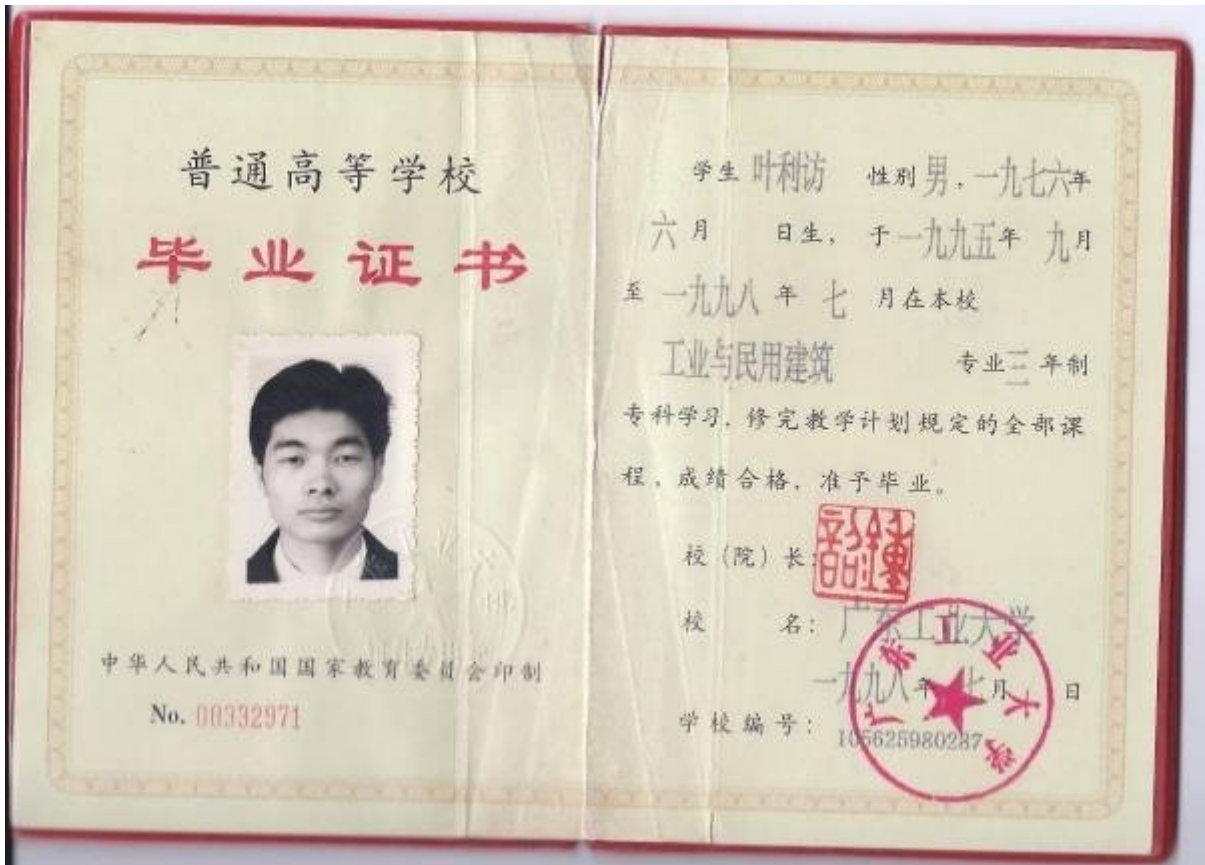 普通高等学校
毕业证书
中华人民共和国国家教育委员会印制
No. 00332971
学生 叶利访 性别 男，一九七六年
六月 日生，于一九九五年 九月
至 一九九八 年 七 月在本校
工业与民用建筑 专业三年制
专科学习，修完教学计划规定的全部课
程，成绩合格，准予毕业。
校（院）长：
校 名：广东工业大学
一九九八年 七月 日
学校编号：105625980287
广东工业大学